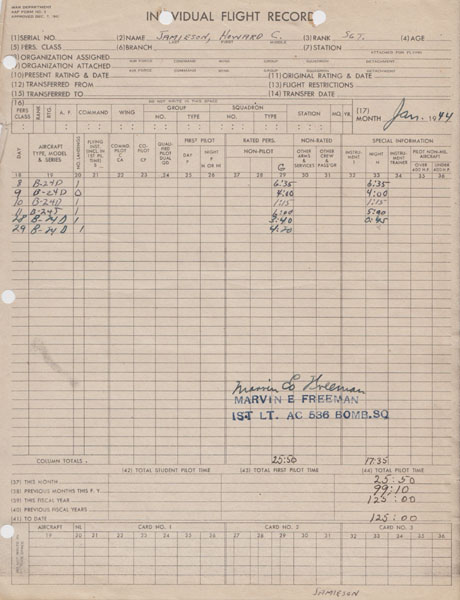 WAR DEPARTMENT
AAF FORM NO. 5
APPROVED DEC. 7, 1942
INDIVIDUAL FLIGHT RECORD
(1) SERIAL NO. (2) NAME JAMIESON, HOWARD C. (3) RANK SGT. (4) AGE
LAST FIRST MIDDLE
(5) PERS. CLASS (6) BRANCH (7) STATION
ORGANIZATION ASSIGNED AIR FORCE COMMAND WING GROUP SQUADRON DETACHMENT
ORGANIZATION ATTACHED ATTACHED FOR FLYING
AIR FORCE COMMAND WING GROUP SQUADRON DETACHMENT
(10) PRESENT RATING & DATE (11) ORIGINAL RATING & DATE
(12) TRANSFERRED FROM (13) FLIGHT RESTRICTIONS
(15) TRANSFERRED TO (14) TRANSFER DATE
DO NOT WRITE IN THIS SPACE
(16) PERS. CLASS RANK RTG. A. F. COMMAND WING GROUP NO. TYPE SQUADRON NO. TYPE STATION MO. YR. (17) MONTH Jan. 1944
DAY AIRCRAFT TYPE, MODEL & SERIES NO. LANDINGS FLYING INST. COMMD. PILOT CO-PILOT CP QUALIFIED PILOT DUAL QD FIRST PILOT DAY P NIGHT P RATED PERS. NON-PILOT NON-RATED OTHER ARMS & SERVICES OTHER CREW & PASS'GR SPECIAL INFORMATION INSTRUMENT NIGHT INSTRUMENT TRAINER PILOT NON-MIL. AIRCRAFT OVER 400 H.P. UNDER 400 H.P.
18 19 20 21 22 23 24 25 26 27 28 29 30 31 32 33 34 35 36
8 B-24D 1 6:35 6:35
9 B-24D 0 4:00 4:00
10 B-24D 1 1:15 1:15
11 B-24J 1 5:00
28 B-24D 1 3:40 0:45
29 B-24D 1 4:20
Marvin E Freeman
MARVIN E FREEMAN
1ST LT. AC 536 BOMB.SQ
COLUMN TOTALS 25:50 17:35
(42) TOTAL STUDENT PILOT TIME (43) TOTAL FIRST PILOT TIME (44) TOTAL PILOT TIME
(37) THIS MONTH 25:50
(38) PREVIOUS MONTHS THIS F. Y. 99:10
(39) THIS FISCAL YEAR 125:00
(40) PREVIOUS FISCAL YEARS
(41) TO DATE 125:00
AIRCRAFT NL CARD NO. 1 CARD NO. 2 CARD NO. 3
19 20 21 22 23 24 25 26 27 28 29 30 31 32 33 34 35 36
JAMIESON